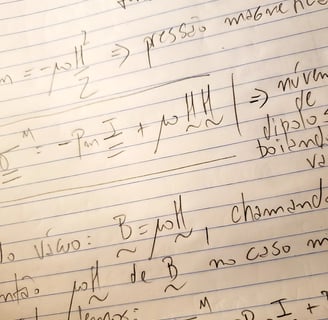 m = -μ₀H²/2 ⇒ pressão magné
σᴹ = -Pm I + μ₀HH | ⇒ núm
de
dipolos
boiand
va
do vácuo: B = μ₀H, chamand
ntão μ₀H de B no caso m
M I +